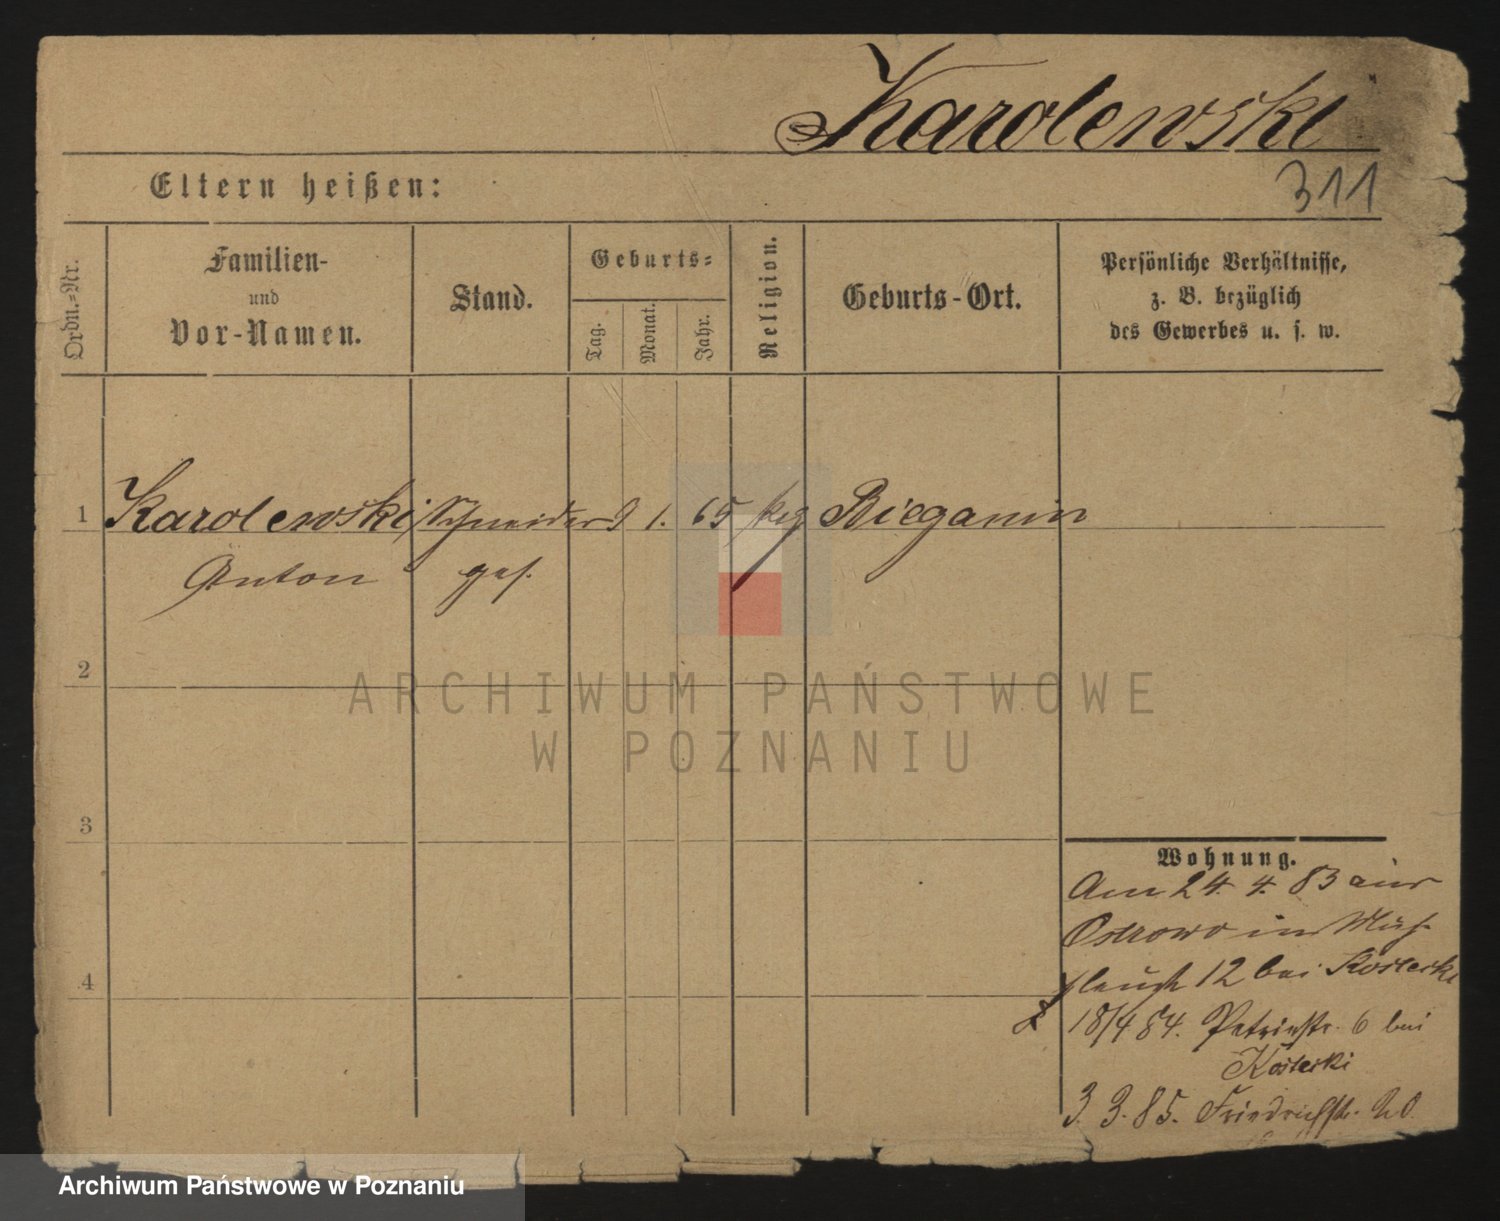 Karolewski
311
Eltern heißen:
Ordn.-Nr.
Familien-
und
Vor-Namen.
Stand.
Geburts-
Tag.
Monat.
Jahr.
Religion.
Geburts-Ort.
Persönliche Verhältnisse,
z. B. bezüglich
des Gewerbes u. s. w.
1 Karolewski Schneider 9 1. 65 Bieganin
Anton ges.
2
3
4
Wohnung.
Am 24. 4. 83 aus
Ostrowo in
12 bei Kosicki
18/4 84. Petristr. 6 bei
Kosicki
3. 3. 85. Friedrichstr. 20
ARCHIWUM PAŃSTWOWE
W POZNANIU
Archiwum Państwowe w Poznaniu